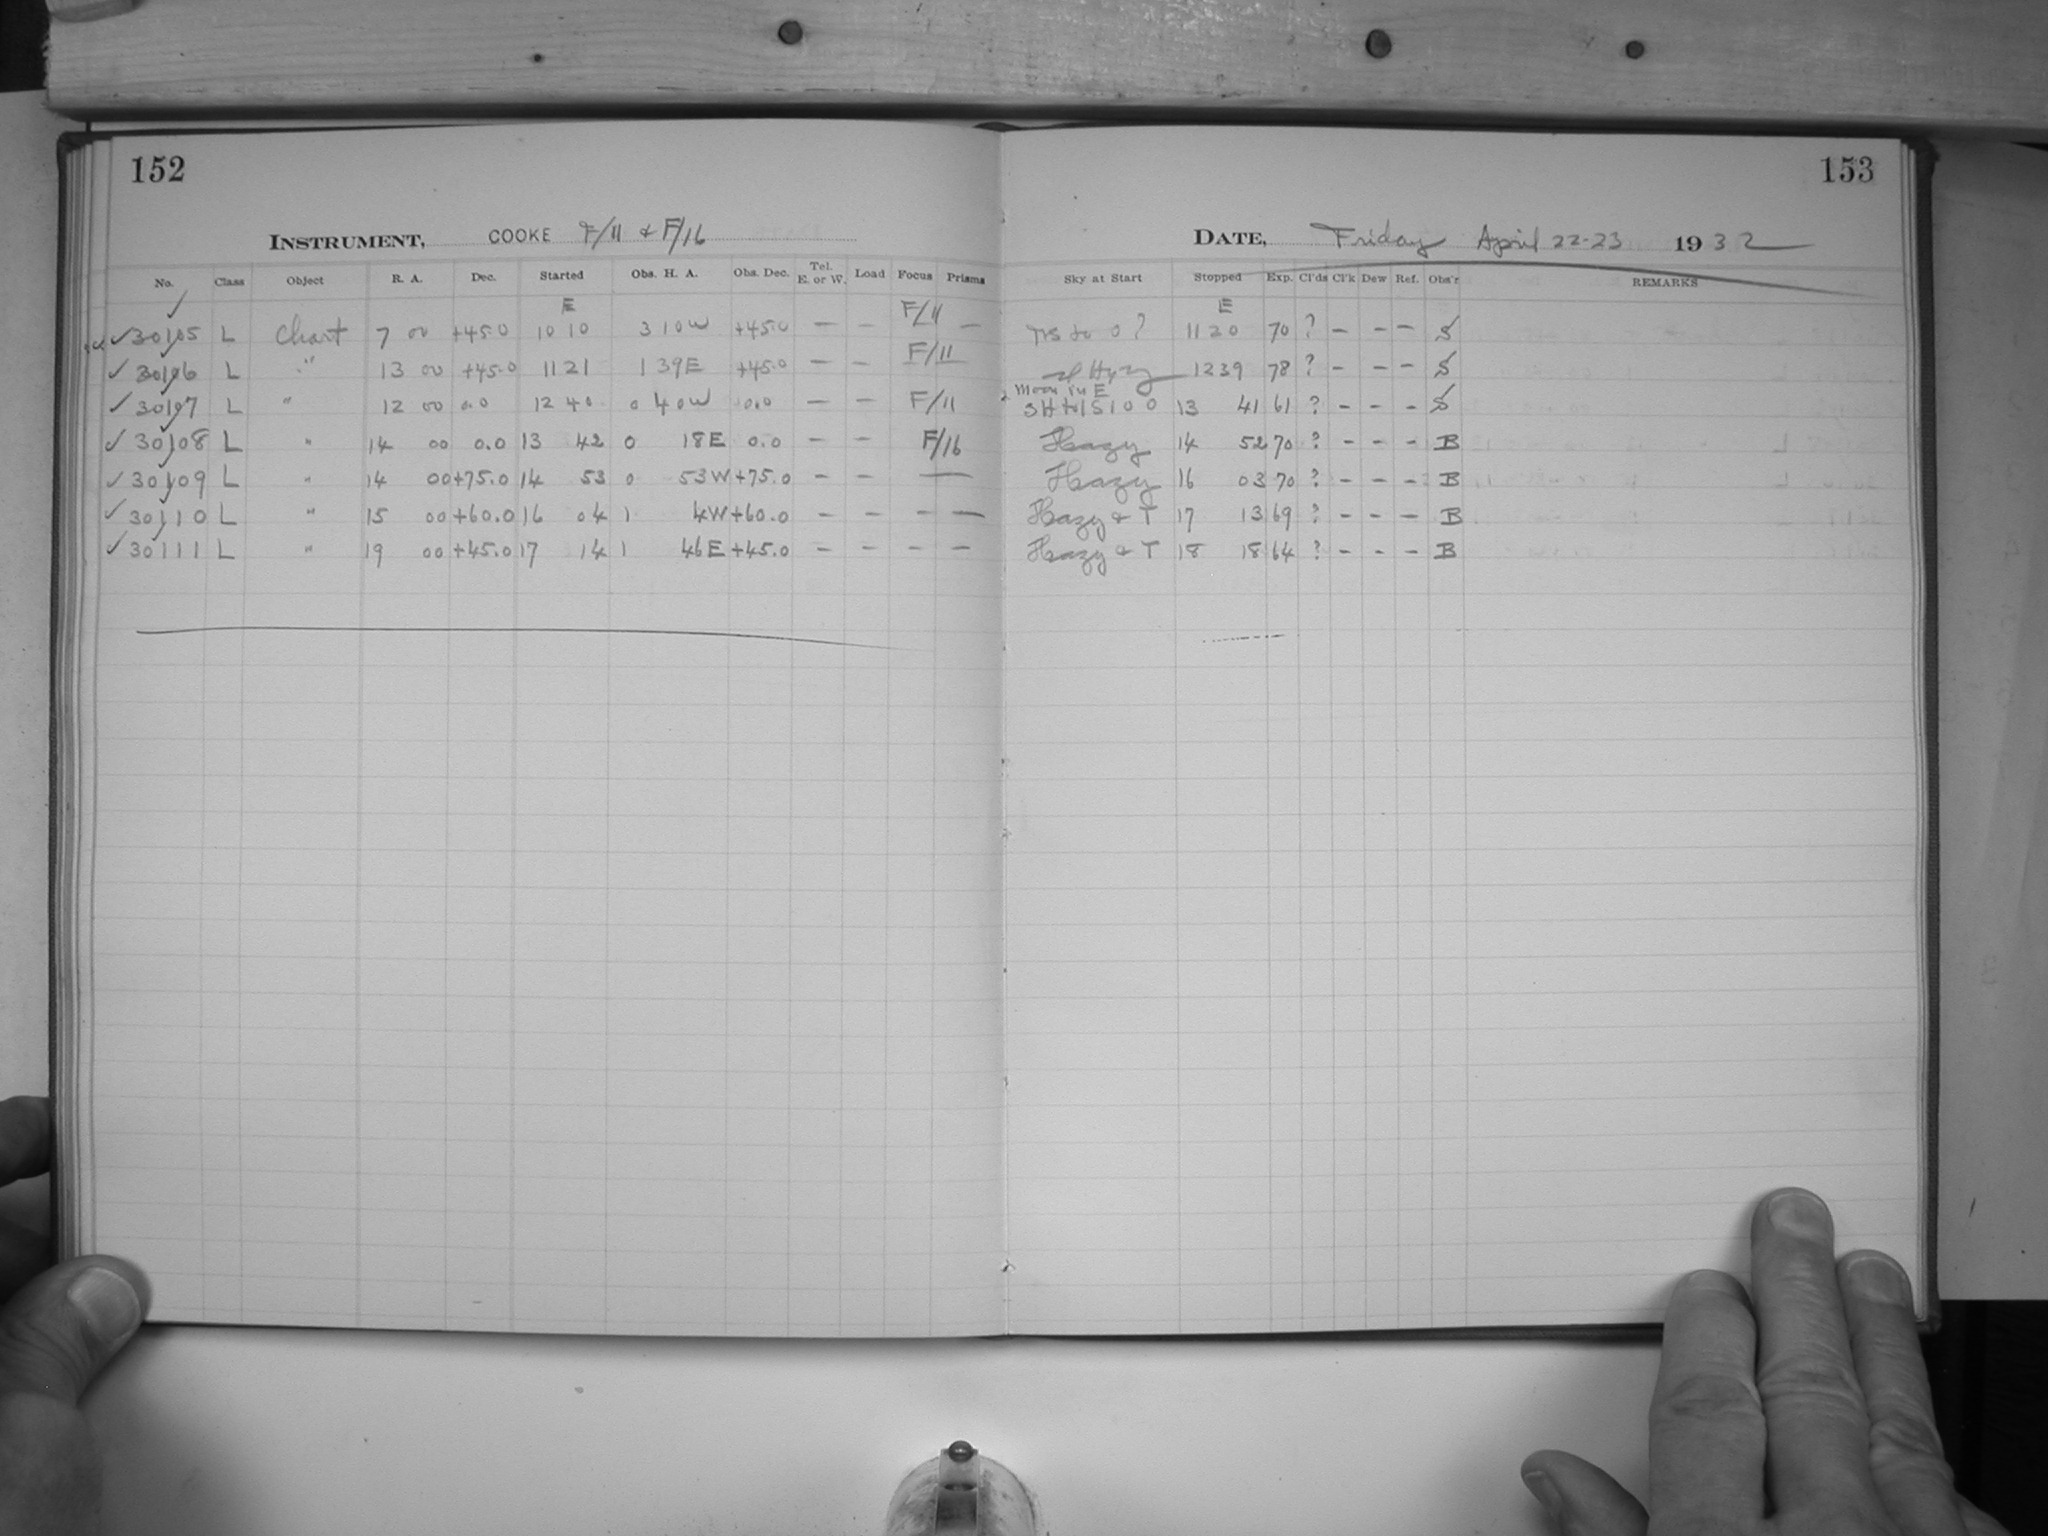 152
INSTRUMENT, COOKE F/11 & F/16
No. Class Object R. A. Dec. Started Obs. H. A. Obs. Dec. Tel. E. or W. Load Focus Prisms
E
✓ 30105 L Chart 7 00 +45.0 10 10 3 10 W +45.0 — — F/11 —
✓ 30106 L " 13 00 +45.0 11 21 1 39 E +45.0 — — F/11
✓ 30107 L " 12 00 0.0 12 40 0 40 W 0.0 — — F/11
✓ 30108 L " 14 00 0.0 13 42 0 18 E 0.0 — — F/16
✓ 30109 L " 14 00 +75.0 14 53 0 53 W +75.0 — — —
✓ 30110 L " 15 00 +60.0 16 04 1 4 W +60.0 — — — —
✓ 30111 L " 19 00 +45.0 17 14 1 46 E +45.0 — — — —
153
DATE, Friday April 22-23 1932
Sky at Start Stopped Exp. Cl'ds Cl'k Dew Ref. Obs'r REMARKS
E
to 0 ? 11 20 70 ? — — — S
12 39 78 ? — — — S
Moon in E
13 41 61 ? — — — S
Hazy 14 52 70 ? — — — B
Hazy 16 03 70 ? — — — B
Hazy & T 17 13 69 ? — — — B
Hazy & T 18 18 64 ? — — — B